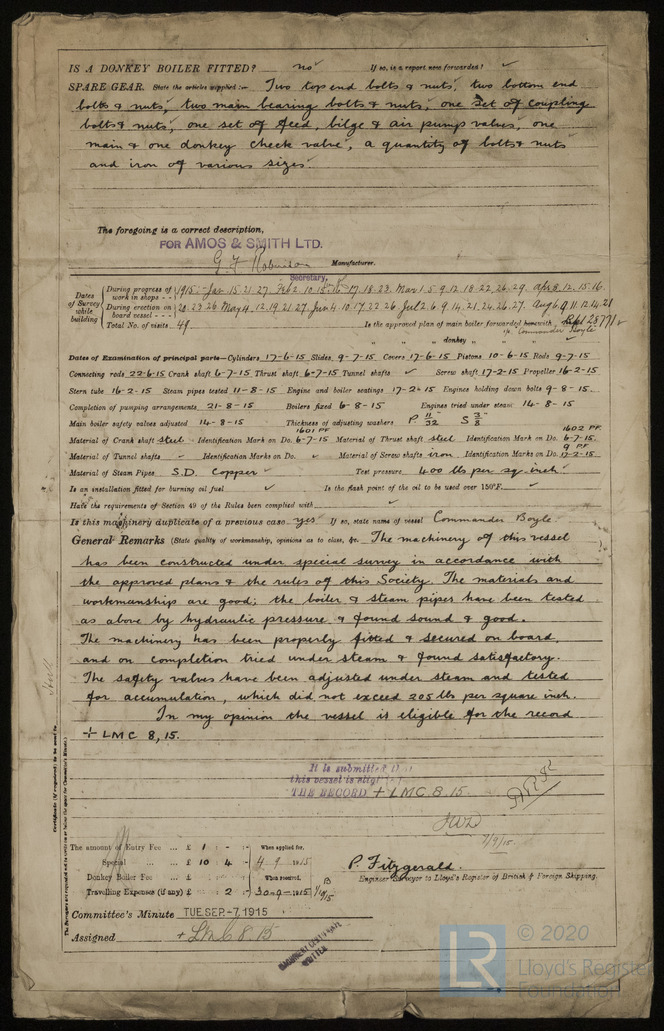 IS A DONKEY BOILER FITTED? no If so, is a report now forwarded?
SPARE GEAR. State the articles supplied:— Two top end bolts & nuts, two bottom end
bolts & nuts, two main bearing bolts & nuts, one set of coupling
bolts & nuts, one set of feed, bilge & air pump valves, one
main & one donkey check valve, a quantity of bolts & nuts
and iron of various sizes.
The foregoing is a correct description,
FOR AMOS & SMITH LTD.
G F Robinson Manufacturer.
Secretary.
Dates of Survey while building
During progress of work in shops - - 1915: Jan 15. 21. 27. Feb 2. 10. 15. 16. 17. 18. 23. Mar 1. 5. 9. 12. 16. 22. 26. 29. Apr 8. 12. 15. 16.
During erection on board vessel - - - 20. 23. 26. May 4. 12. 19. 21. 27. Jun 4. 10. 17. 22. 26. Jul 2. 6. 9. 14. 21. 24. 26. 27. Aug 6. 9. 11. 12. 14. 21
Total No. of visits 49. Is the approved plan of main boiler forwarded herewith
Commander Boyle
" " " donkey " " "
Dates of Examination of principal parts—Cylinders 17-6-15 Slides 9-7-15 Covers 17-6-15 Pistons 10-6-15 Rods 9-7-15
Connecting rods 22-6-15 Crank shaft 6-7-15 Thrust shaft 6-7-15 Tunnel shafts Screw shaft 17-2-15 Propeller 16-2-15
Stern tube 16-2-15 Steam pipes tested 11-8-15 Engine and boiler seatings 17-2-15 Engines holding down bolts 9-8-15.
Completion of pumping arrangements 21-8-15 Boilers fixed 6-8-15 Engines tried under steam 14-8-15
Main boiler safety valves adjusted 14-8-15 Thickness of adjusting washers P 11/32" S 3/8"
1601 PF 1602 PF
Material of Crank shaft steel Identification Mark on Do. 6-7-15 Material of Thrust shaft steel Identification Mark on Do. 6-7-15.
9 PF
Material of Tunnel shafts Identification Marks on Do. Material of Screw shafts iron Identification Marks on Do. 17-2-15
Material of Steam Pipes S.D. Copper Test pressure 400 lbs per sq. inch
Is an installation fitted for burning oil fuel Is the flash point of the oil to be used over 150°F.
Have the requirements of Section 49 of the Rules been complied with
Is this machinery duplicate of a previous case yes If so, state name of vessel Commander Boyle
General Remarks (State quality of workmanship, opinions as to class, &c. The machinery of this vessel
has been constructed under special survey in accordance with
the approved plans & the rules of this Society. The materials and
workmanship are good; the boiler & steam pipes have been tested
as above by hydraulic pressure & found sound & good.
The machinery has been properly fitted & secured on board,
and on completion tried under steam & found satisfactory.
The safety valves have been adjusted under steam and tested
for accumulation, which did not exceed 205 lbs per square inch.
In my opinion the vessel is eligible for the record
+ LMC 8, 15.
It is submitted that
this vessel is eligible for
THE RECORD + LMC. 8. 15.
JWD
7/9/15
The amount of Entry Fee ... £ 1 : - : - When applied for,
Special ... ... £ 10 : 4 : - 4. 9. 1915
Donkey Boiler Fee ... £ : : When received,
Travelling Expenses (if any) £ : 2 : 30-9-1915
P. Fitzgerald.
Engineer Surveyor to Lloyd's Register of British & Foreign Shipping.
Committee's Minute TUE. SEP. -7. 1915
Assigned + LMC 8.15
MACHINERY CERTIFICATE
WRITTEN
Hull
LR
© 2020
Lloyd's Register
Foundation